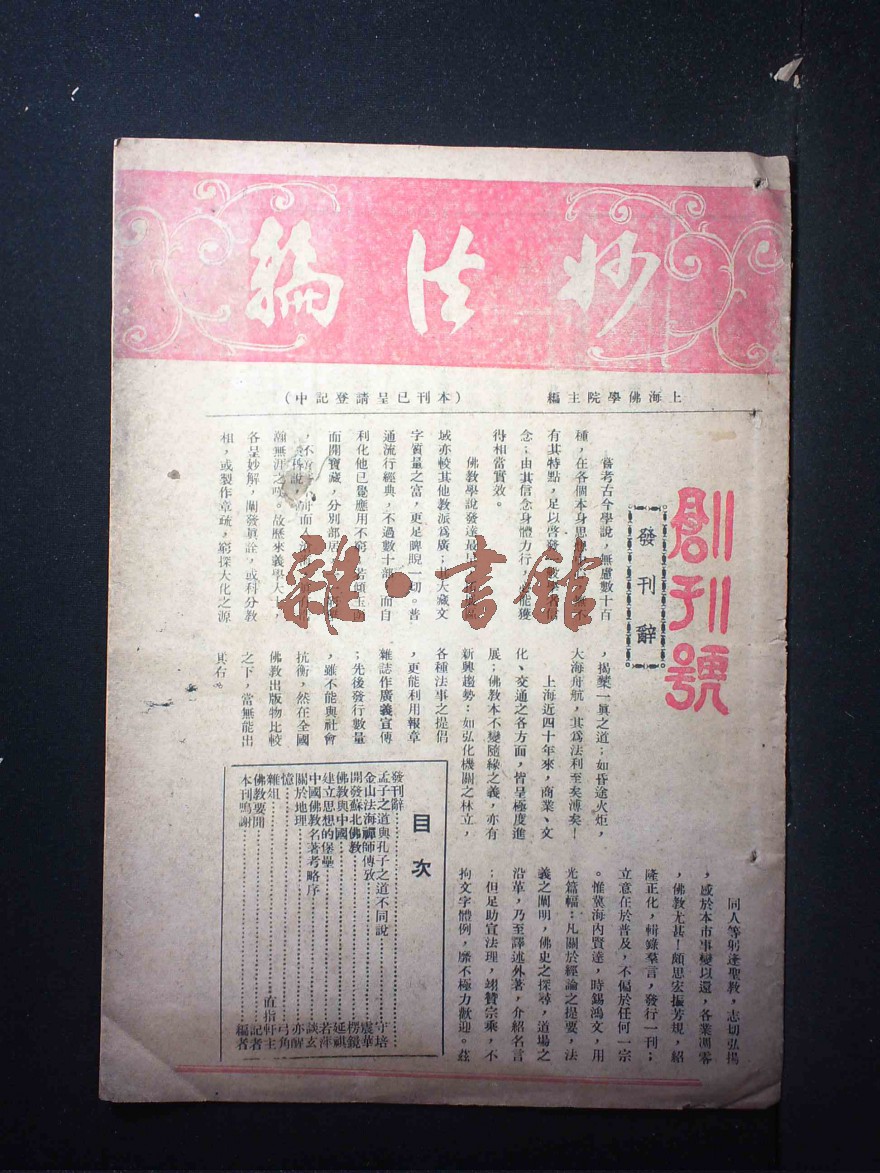 妙法輪
上海佛學院主編
（本刊已呈請登記中）
創刊號
發刊辭
嘗考古今學說，無慮數十百
種，在各個本身思
有其特點，足以啓發
念；由其信念身體力行，能獲
得相當實效。
佛教學說發達最
域亦較其他教派爲廣；大藏文
字質量之富，更足睥睨一切。普
通流行經典，不過數十部，而自
利化他已覺應用不窮，若傾
面開寶藏，分別部居
瀚無涯之嘆。故歷來義學大
各呈妙解，闡發眞詮，或科分教
相，或製作章疏，窮探大化之源
，揭櫫一眞之道；如昏途火炬，
大海舟航，其爲法利至矣溥矣！
上海近四十年來，商業、文
化、交通之各方面，皆呈極度進
展；佛教本不變隨緣之義，亦有
新興趨勢：如弘化機關之林立，
各種法事之提倡
，更能利用報章
雜誌作廣義宣傳
；先後發行數量
，雖不能與社會
抗衡，然在全國
佛教出版物比較
之下，當無能出
其右。
同人等躬逢聖教，志切弘揚
，感於本市事變以還，各業凋零
，佛教尤甚！頗思宏振芳規，紹
隆正化，輯錄羣言，發行一刊；
立意在於普及，不偏於任何一宗
。惟冀海內賢達，時錫鴻文，用
光篇幅：凡關於經論之提要，法
義之闡明，佛史之探尋，道場之
沿革，乃至譯述外著，介紹名言
；但足助宣法理，翊贊宗乘，不
拘文字體例，靡不極力歡迎。茲
目次
發刊辭
孟子之道與孔子之道不同說……守培
金山法海禪師傳致……震華
開發蘇北佛教……楞鏡
佛教與中國……延祺
建立思想的堡壘……若萍
中國佛教名著考略序……談玄
關於地理……亦醒
憶……弓角
雜俎……直指軒主
佛教要聞……記者
本刊鳴謝……編者
雜·書館